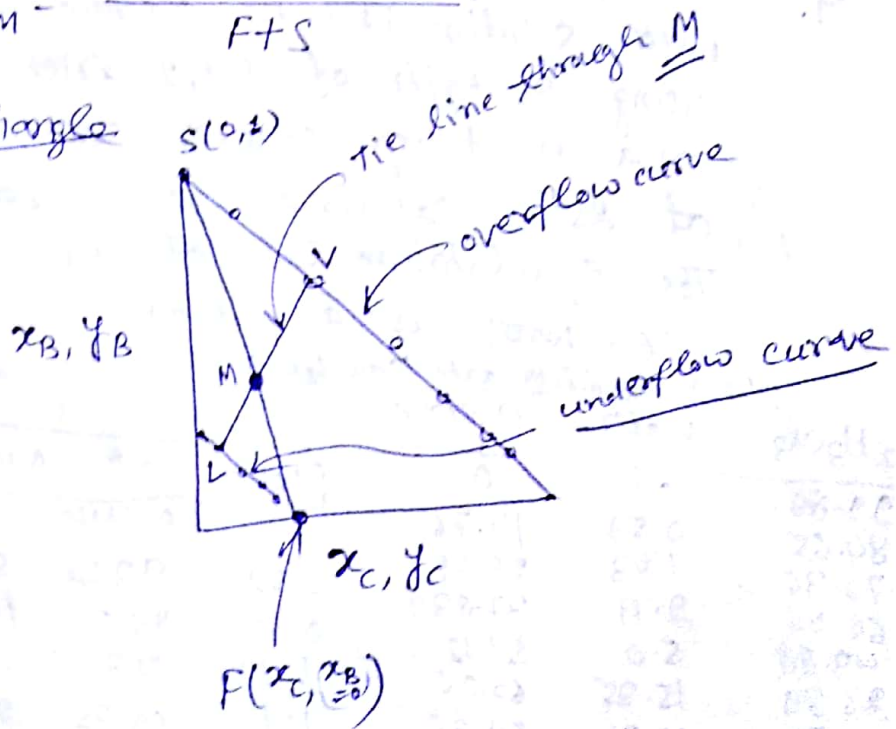 M -
F+S
S(0,1)
tie line through M
overflow curve
V
x_B, y_B
M
underflow curve
L
x_C, y_C
F(x_C, x_B=0)